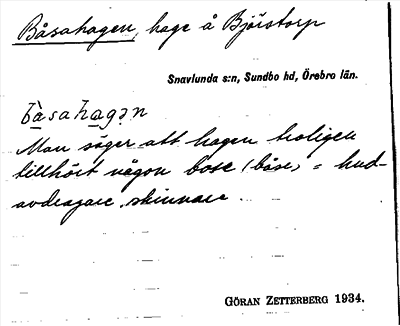 Båsahagen, hage å Björstorp
Snavlunda s:n, Sundbo hd, Örebro län.
bàsahagən
Man säger att hagen troligen
tillhört någon bose (båse) = hud-
avdragare, skinnare.
GÖRAN ZETTERBERG 1934.